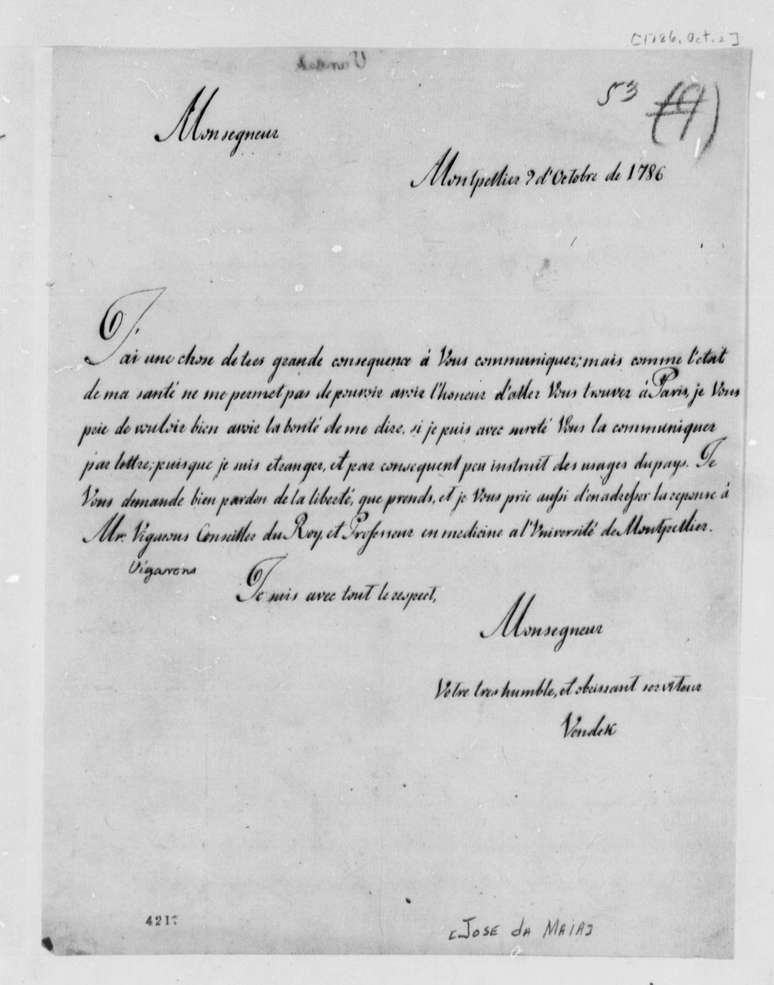 [1786, Oct. 2]
53 (9)
Monsegneur
Montpellier 2 d'Octobre de 1786
J'ai une chose de tres grande consequence à Vous communiquer; mais comme l'etat
de ma santé ne me permet pas de pouvoir avoir l'honeur d'aller Vous trouver à Paris, je Vous
prie de vouloir bien avoir la bonté de me dire, si je puis avec sureté Vous la communiquer
par lettre; puisque je suis etranger, et par consequent peu instruit des usages du pays. Je
Vous demande bien pardon de la liberté, que prends, et je Vous prie aussi d'en adresser la reponse à
Mr. Vigarous Conseiller du Roy, et Professeur en medicine a l'Université de Montpellier.
Vigarrons
Je suis avec tout le respect,
Monsegneur
Votre tres humble, et obeissant serviteur
Vendek
4217
[JOSE da MAIA]